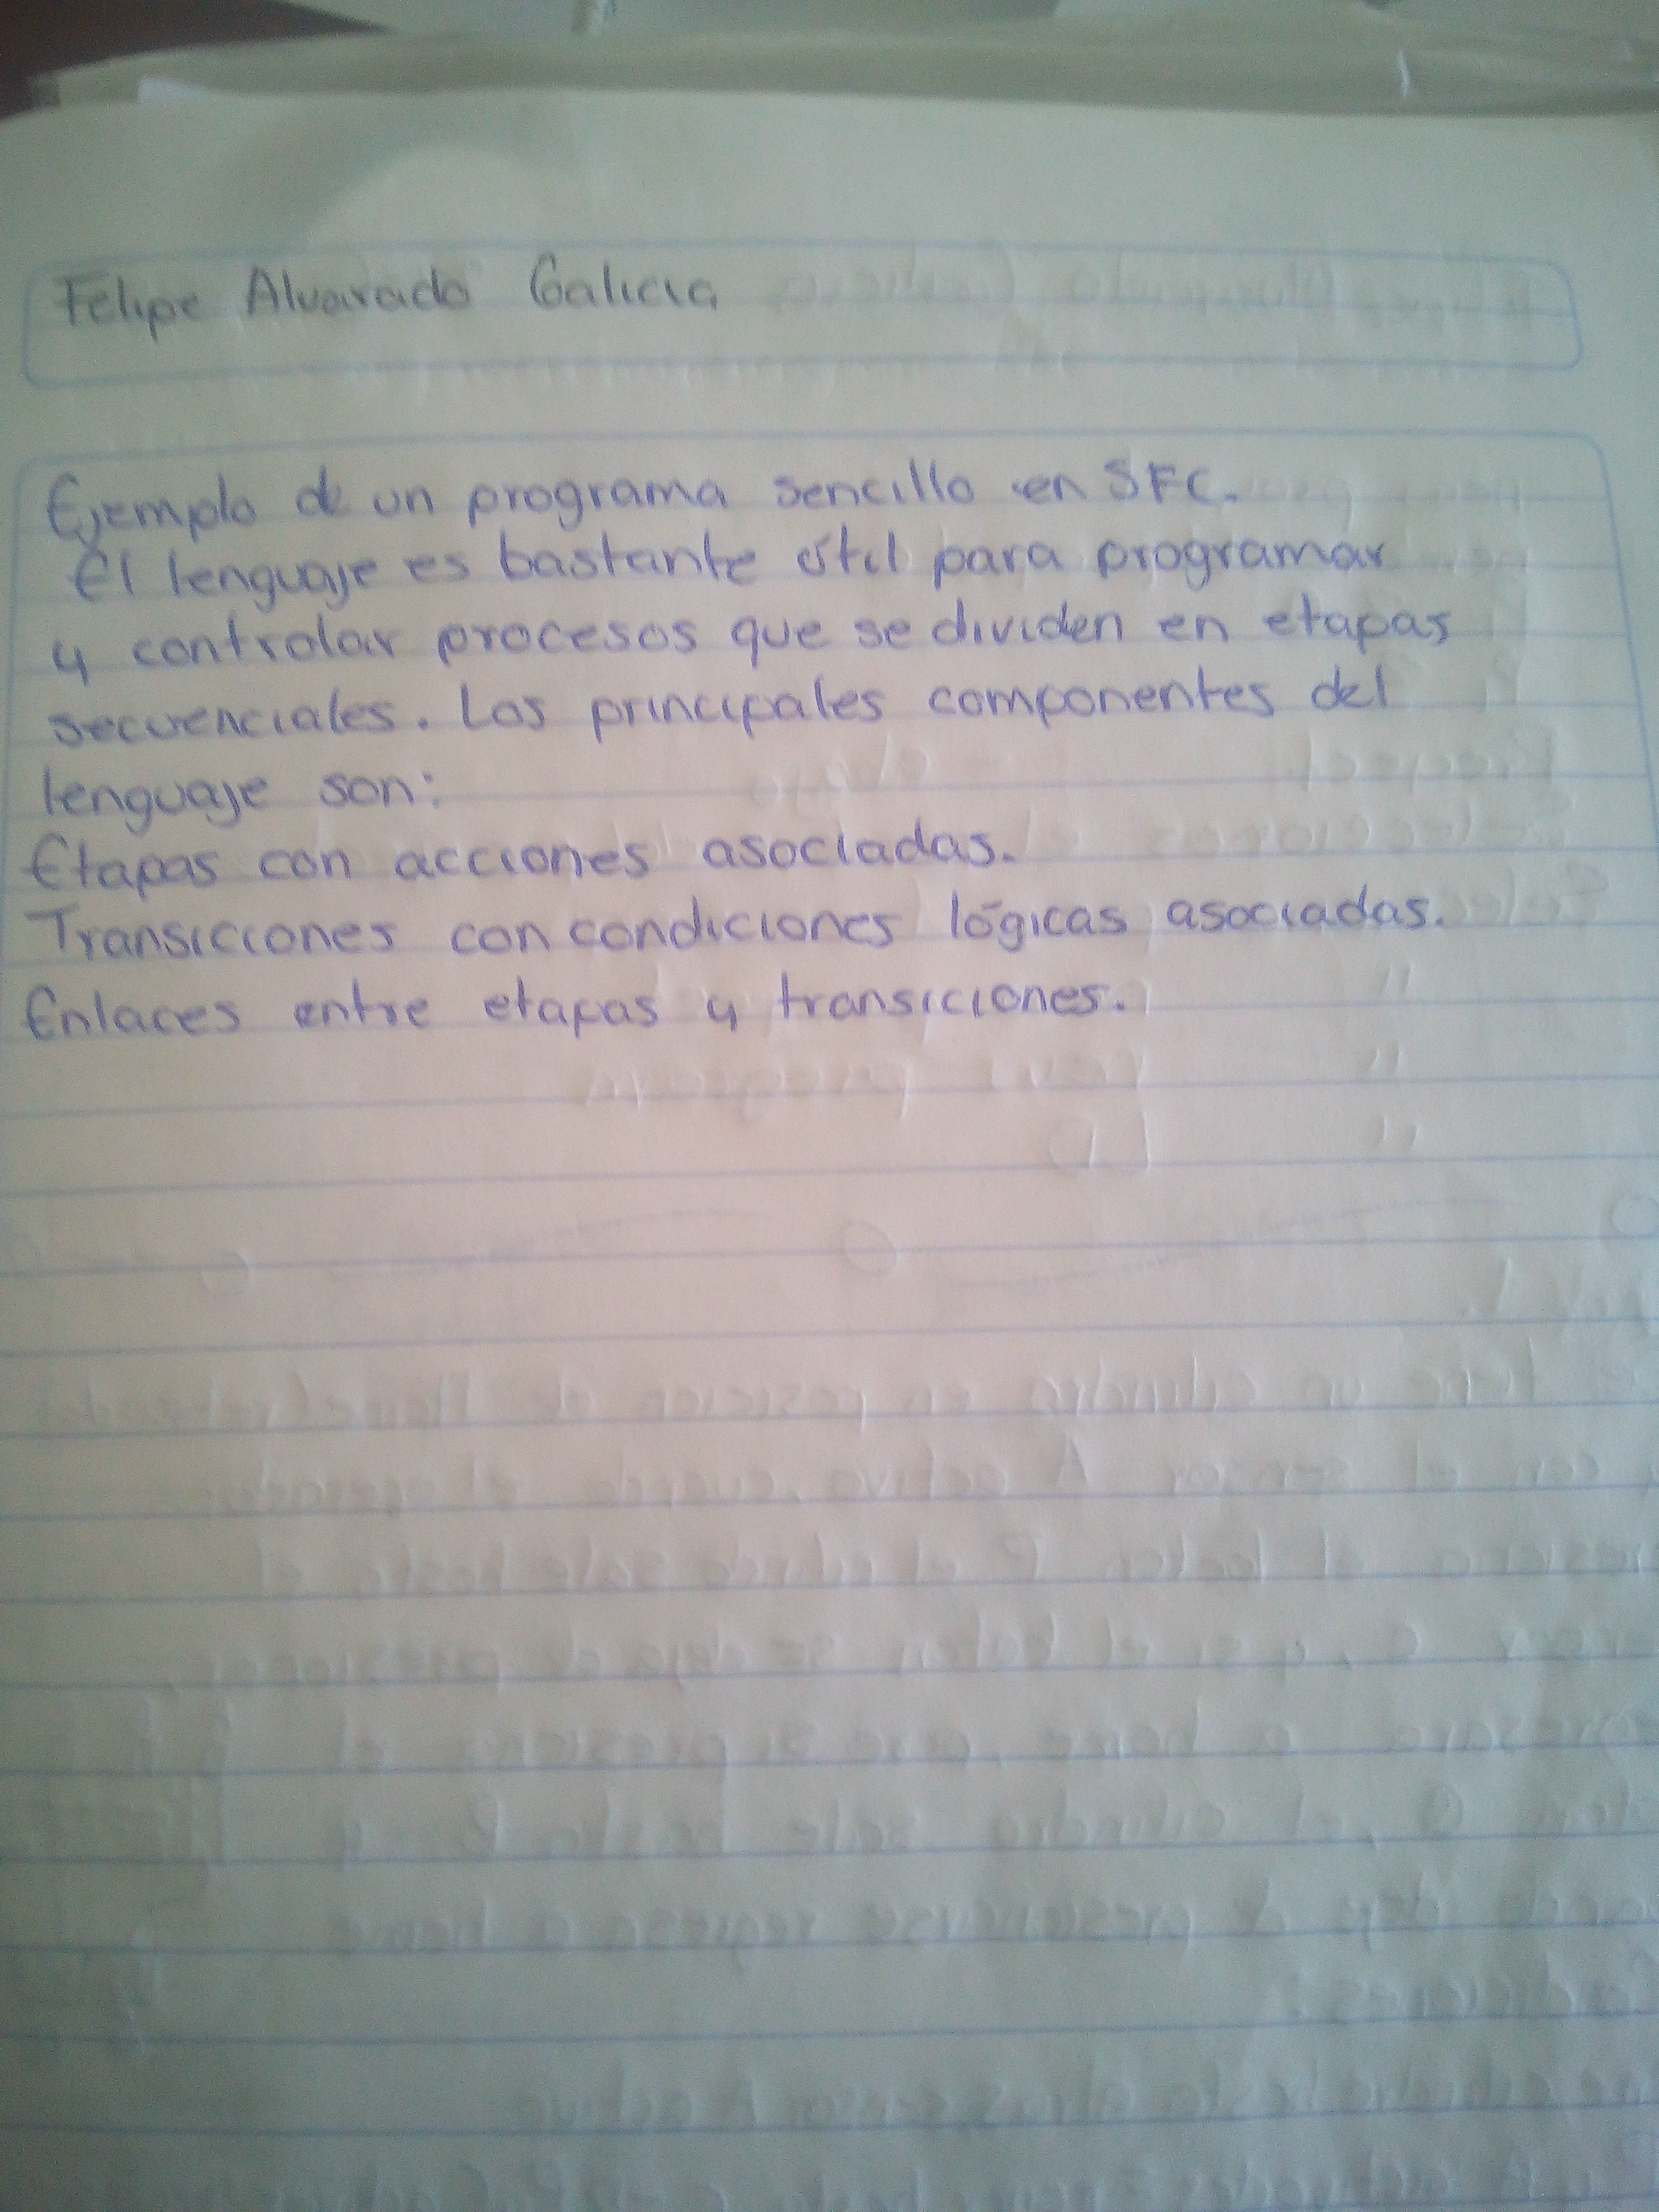 Felipe Alvarado Galicia
Ejemplo de un programa sencillo en SFC.
El lenguaje es bastante útil para programar
y controlar procesos que se dividen en etapas
secuenciales. Los principales componentes del
lenguaje son:
Etapas con acciones asociadas.
Transiciones con condiciones lógicas asociadas.
Enlaces entre etapas y transiciones.